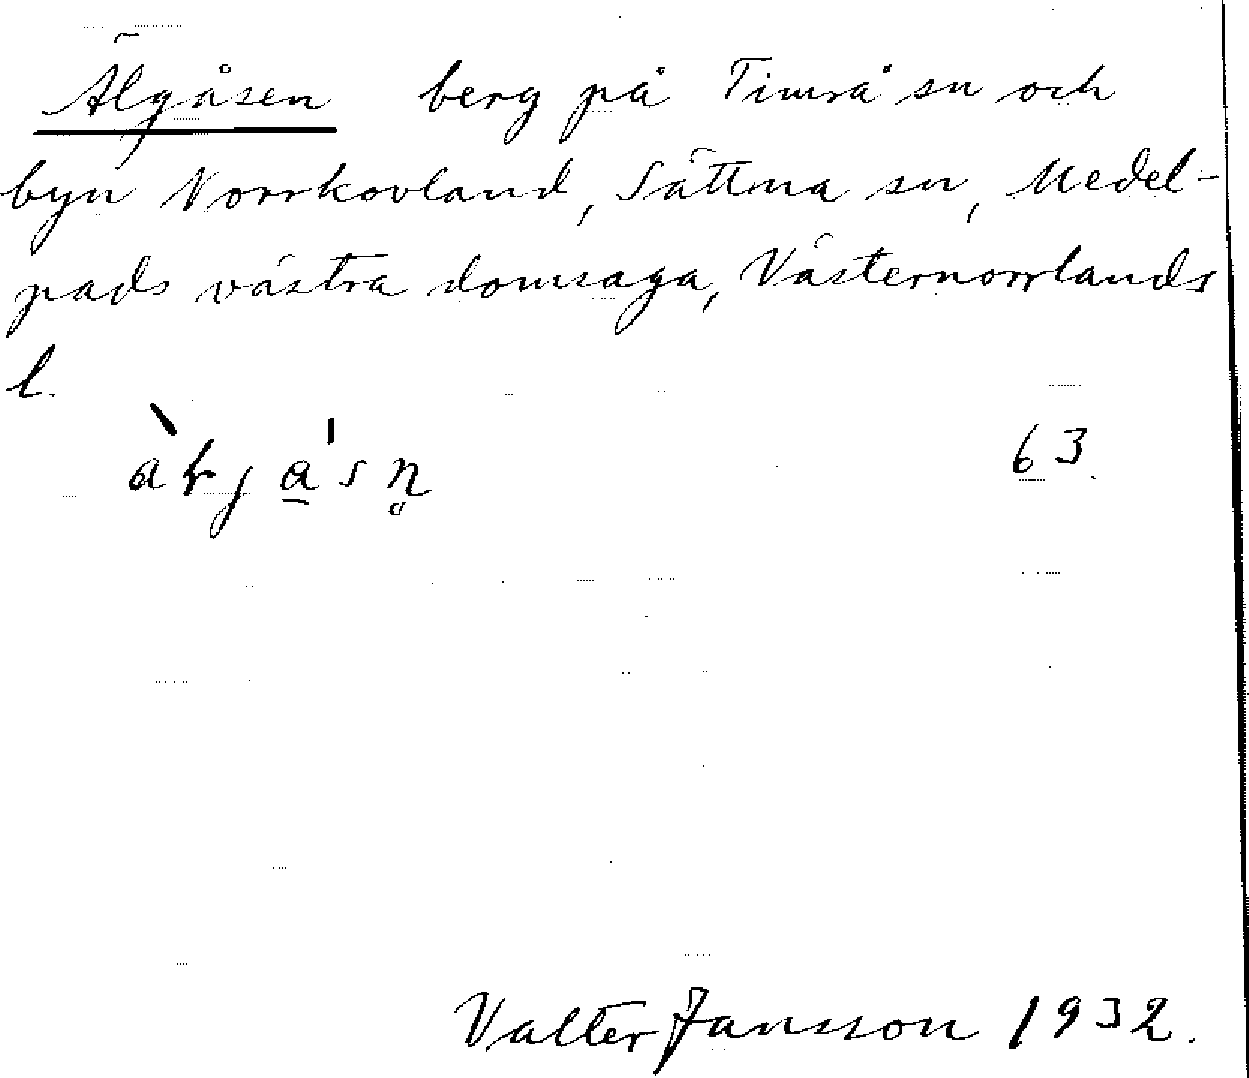 Älgåsen berg på Timrå sn och
byn Norrkovland, Sättna sn, Medel-
pads västra domsaga, Västernorrlands
l.
63.
Valter Jansson 1932.